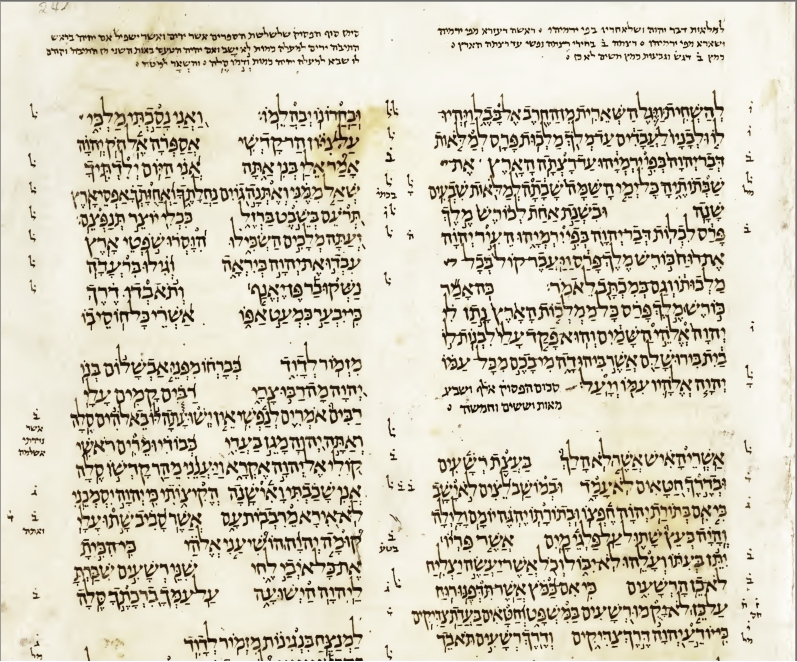 למלאות דבר יהוה ושלאחריו בפי ירמיהו ס ראשה דעזרא מפי ירמיה
ושארא מפי ירמיהו ס רצתה ב נפשי עד רצתה הארץ ס
קמץ ב דגש וגבעות קמץ תשים לא כן ס
להשחית ויגל השארית מן החרב אל בבל ויהיו
לו ולבניו לעבדים עד מלך מלכות פרס למלאות
דבר יהוה בפי ירמיהו עד רצתה הארץ את
שבתותיה כל ימי השמה שבתה למלאות שבעים
שנה ובשנת אחת לכורש מלך
פרס לכלות דבר יהוה בפי ירמיהו העיר יהוה
את רוח כורש מלך פרס ויעבר קול בכל
מלכותו וגם במכתב לאמר כה אמר
כורש מלך פרס כל ממלכות הארץ נתן לי
יהוה אלהי השמים והוא פקד עלי לבנות לו
בית בירושלם אשר ביהודה מי בכם מכל עמו
יהוה אלהיו עמו ויעל סכום הפסוקין אלף ושבע
מאות וששים וחמשה ס
אשרי האיש אשר לא הלך בעצת רשעים
ובדרך חטאים לא עמד ובמושב לצים לא ישב
כי אם בתורת יהוה חפצו ובתורתו יהגה יומם ולילה
והיה כעץ שתול על פלגי מים אשר פריו
יתן בעתו ועלהו לא יבול וכל אשר יעשה יצליח
לא כן הרשעים כי אם כמץ אשר תדפנו רוח
על כן לא יקמו רשעים במשפט וחטאים בעדת צדיקים
כי יודע יהוה דרך צדיקים ודרך רשעים תאבד
סימן סוף הפסוק שלשלשת הספרים אשר ירים ואשר ישפיל אם יהיה בראש
התיבה ירים למעלה כמות לא ישב ואם יהיה הטעם באות השני מן התיבה וקודם
לו שבא למעלה יהיה כמות ודמו סלה ס והשאר למטה ס
ובחרונו יבהלמו ואני נסכתי מלכי
על ציון הר קדשי אספרה אל חק יהוה
אמר אלי בני אתה אני היום ילדתיך
שאל ממני ואתנה גוים נחלתך ואחזתך אפסי ארץ
תרעם בשבט ברזל ככלי יוצר תנפצם
ועתה מלכים השכילו הוסרו שפטי ארץ
עבדו את יהוה ביראה וגילו ברעדה
נשקו בר פן יאנף ותאבדו דרך
כי יבער כמעט אפו אשרי כל חוסי בו
מזמור לדוד בברחו מפני אבשלום בנו
יהוה מה רבו צרי רבים קמים עלי
רבים אמרים לנפשי אין ישועתה לו באלהים סלה
ואתה יהוה מגן בעדי כבודי ומרים ראשי
קולי אל יהוה אקרא ויענני מהר קדשו סלה
אני שכבתי ואישנה הקיצותי כי יהוה יסמכני
לא אירא מרבבות עם אשר סביב שתו עלי
קומה יהוה הושיעני אלהי כי הכית
את כל איבי לחי שני רשעים שברת
ליהוה הישועה על עמך ברכתך סלה
למנצח בנגינות מזמור לדוד